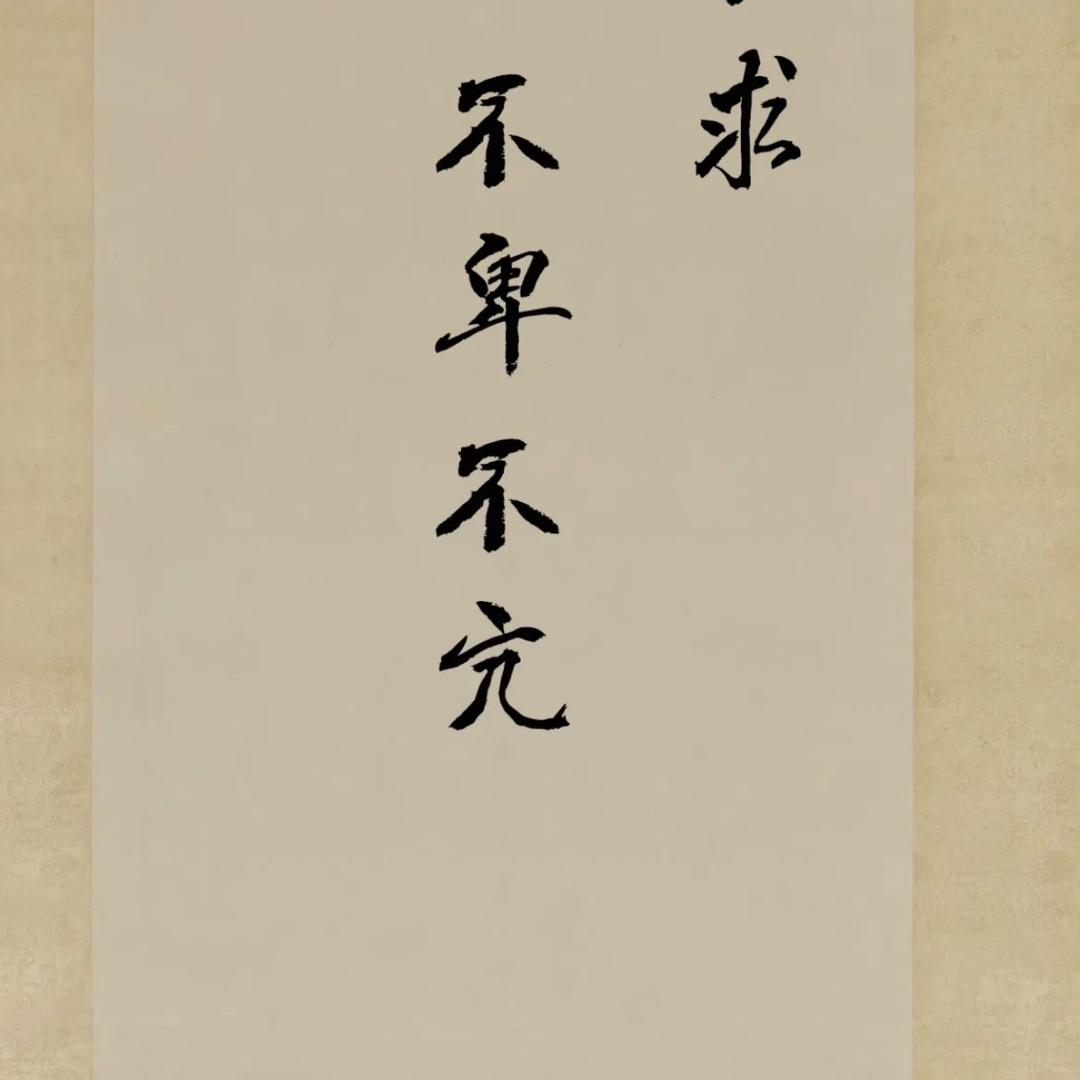 求
不卑不亢